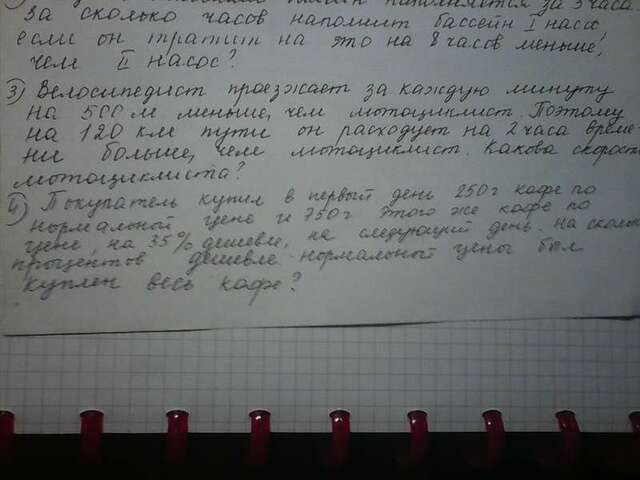 наполняется за 3 часа
за сколько часов наполнит бассейн I насос,
если он тратит на это на 8 часов меньше,
чем II насос?
3) Велосипедист проезжает за каждую минуту
на 500 м меньше, чем мотоциклист. Поэтому
на 120 км пути он расходует на 2 часа време-
ни больше, чем мотоциклист. Какова скорость
мотоциклиста?
4) Покупатель купил в первый день 250 г кофе по
нормальной цене и 750 г этого же кофе по
цене, на 35% дешевле, на следующий день. На сколько
процентов дешевле нормальной цены был
куплен весь кофе?